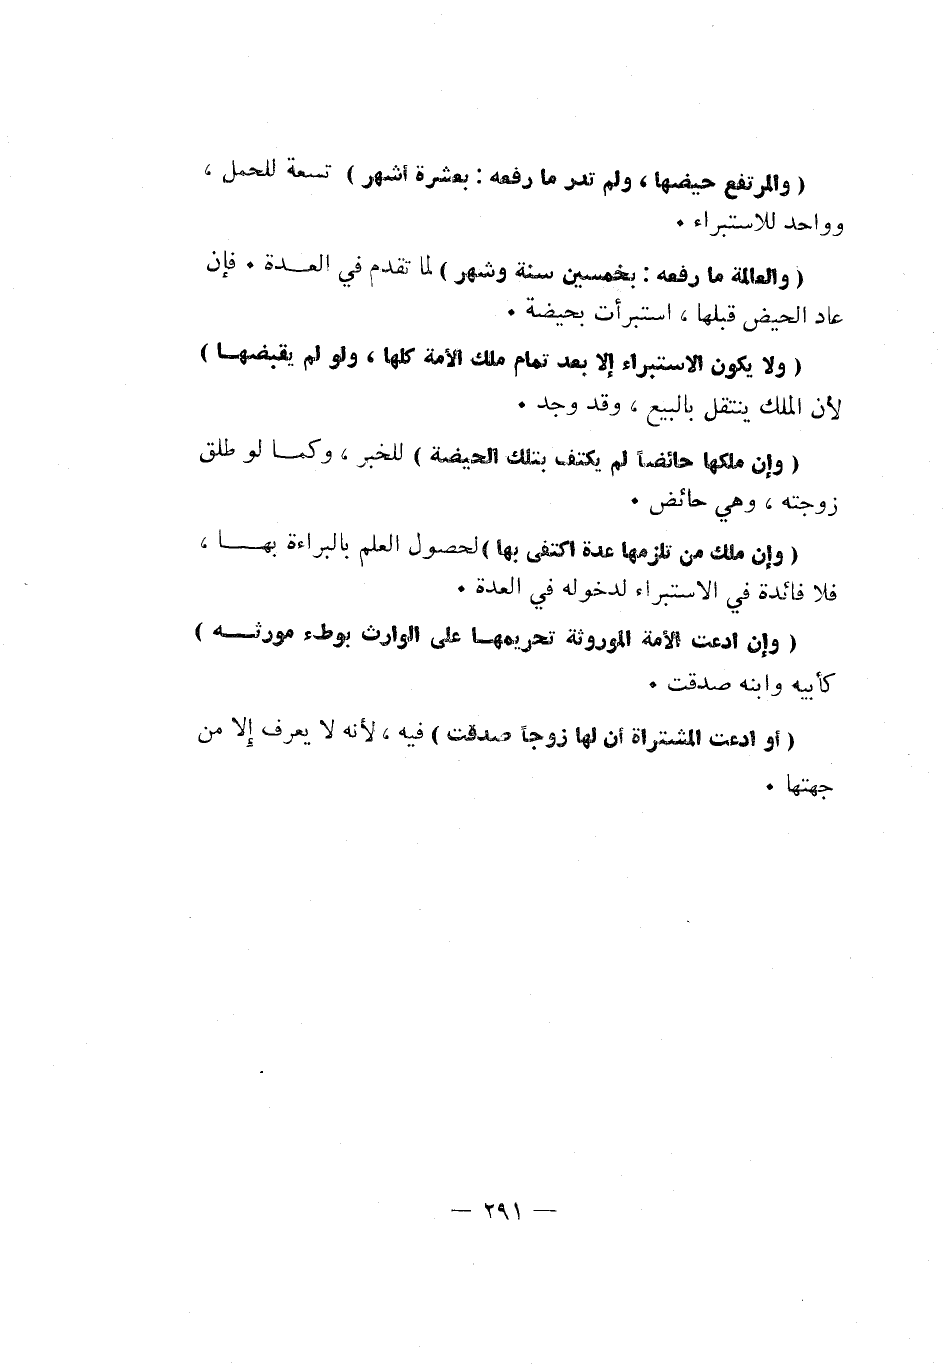 ( والمرتفع حيضها ، ولم تدر ما رفعه : بعشرة أشهر ) تسعة للحمل ،
وواحد للاستبراء .
( والعالمة ما رفعه : بخمسين سنة وشهر ) لما تقدم في العدة . فإن
عاد الحيض قبلها ، استبرأت بحيضة .
( ولا يكون الاستبراء إلا بعد تمام ملك الأمة كلها ، ولو لم يقبضها )
لأن الملك ينتقل بالبيع ، وقد وجد .
( وإن ملكها حائضاً لم يكتف بتلك الحيضة ) للخبر ، وكما لو طلق
زوجته ، وهي حائض .
( وإن ملك من تلزمها عدة اكتفى بها ) لحصول العلم بالبراءة بها ،
فلا فائدة في الاستبراء لدخوله في العدة .
( وإن ادعت الأمة الموروثة تحريمها على الوارث بوطء مورثه )
كأبيه وابنه صدقت .
( أو ادعت المشتراة أن لها زوجاً صدقت ) فيه ، لأنه لا يعرف إلا من
جهتها .
— ٢٩١ —